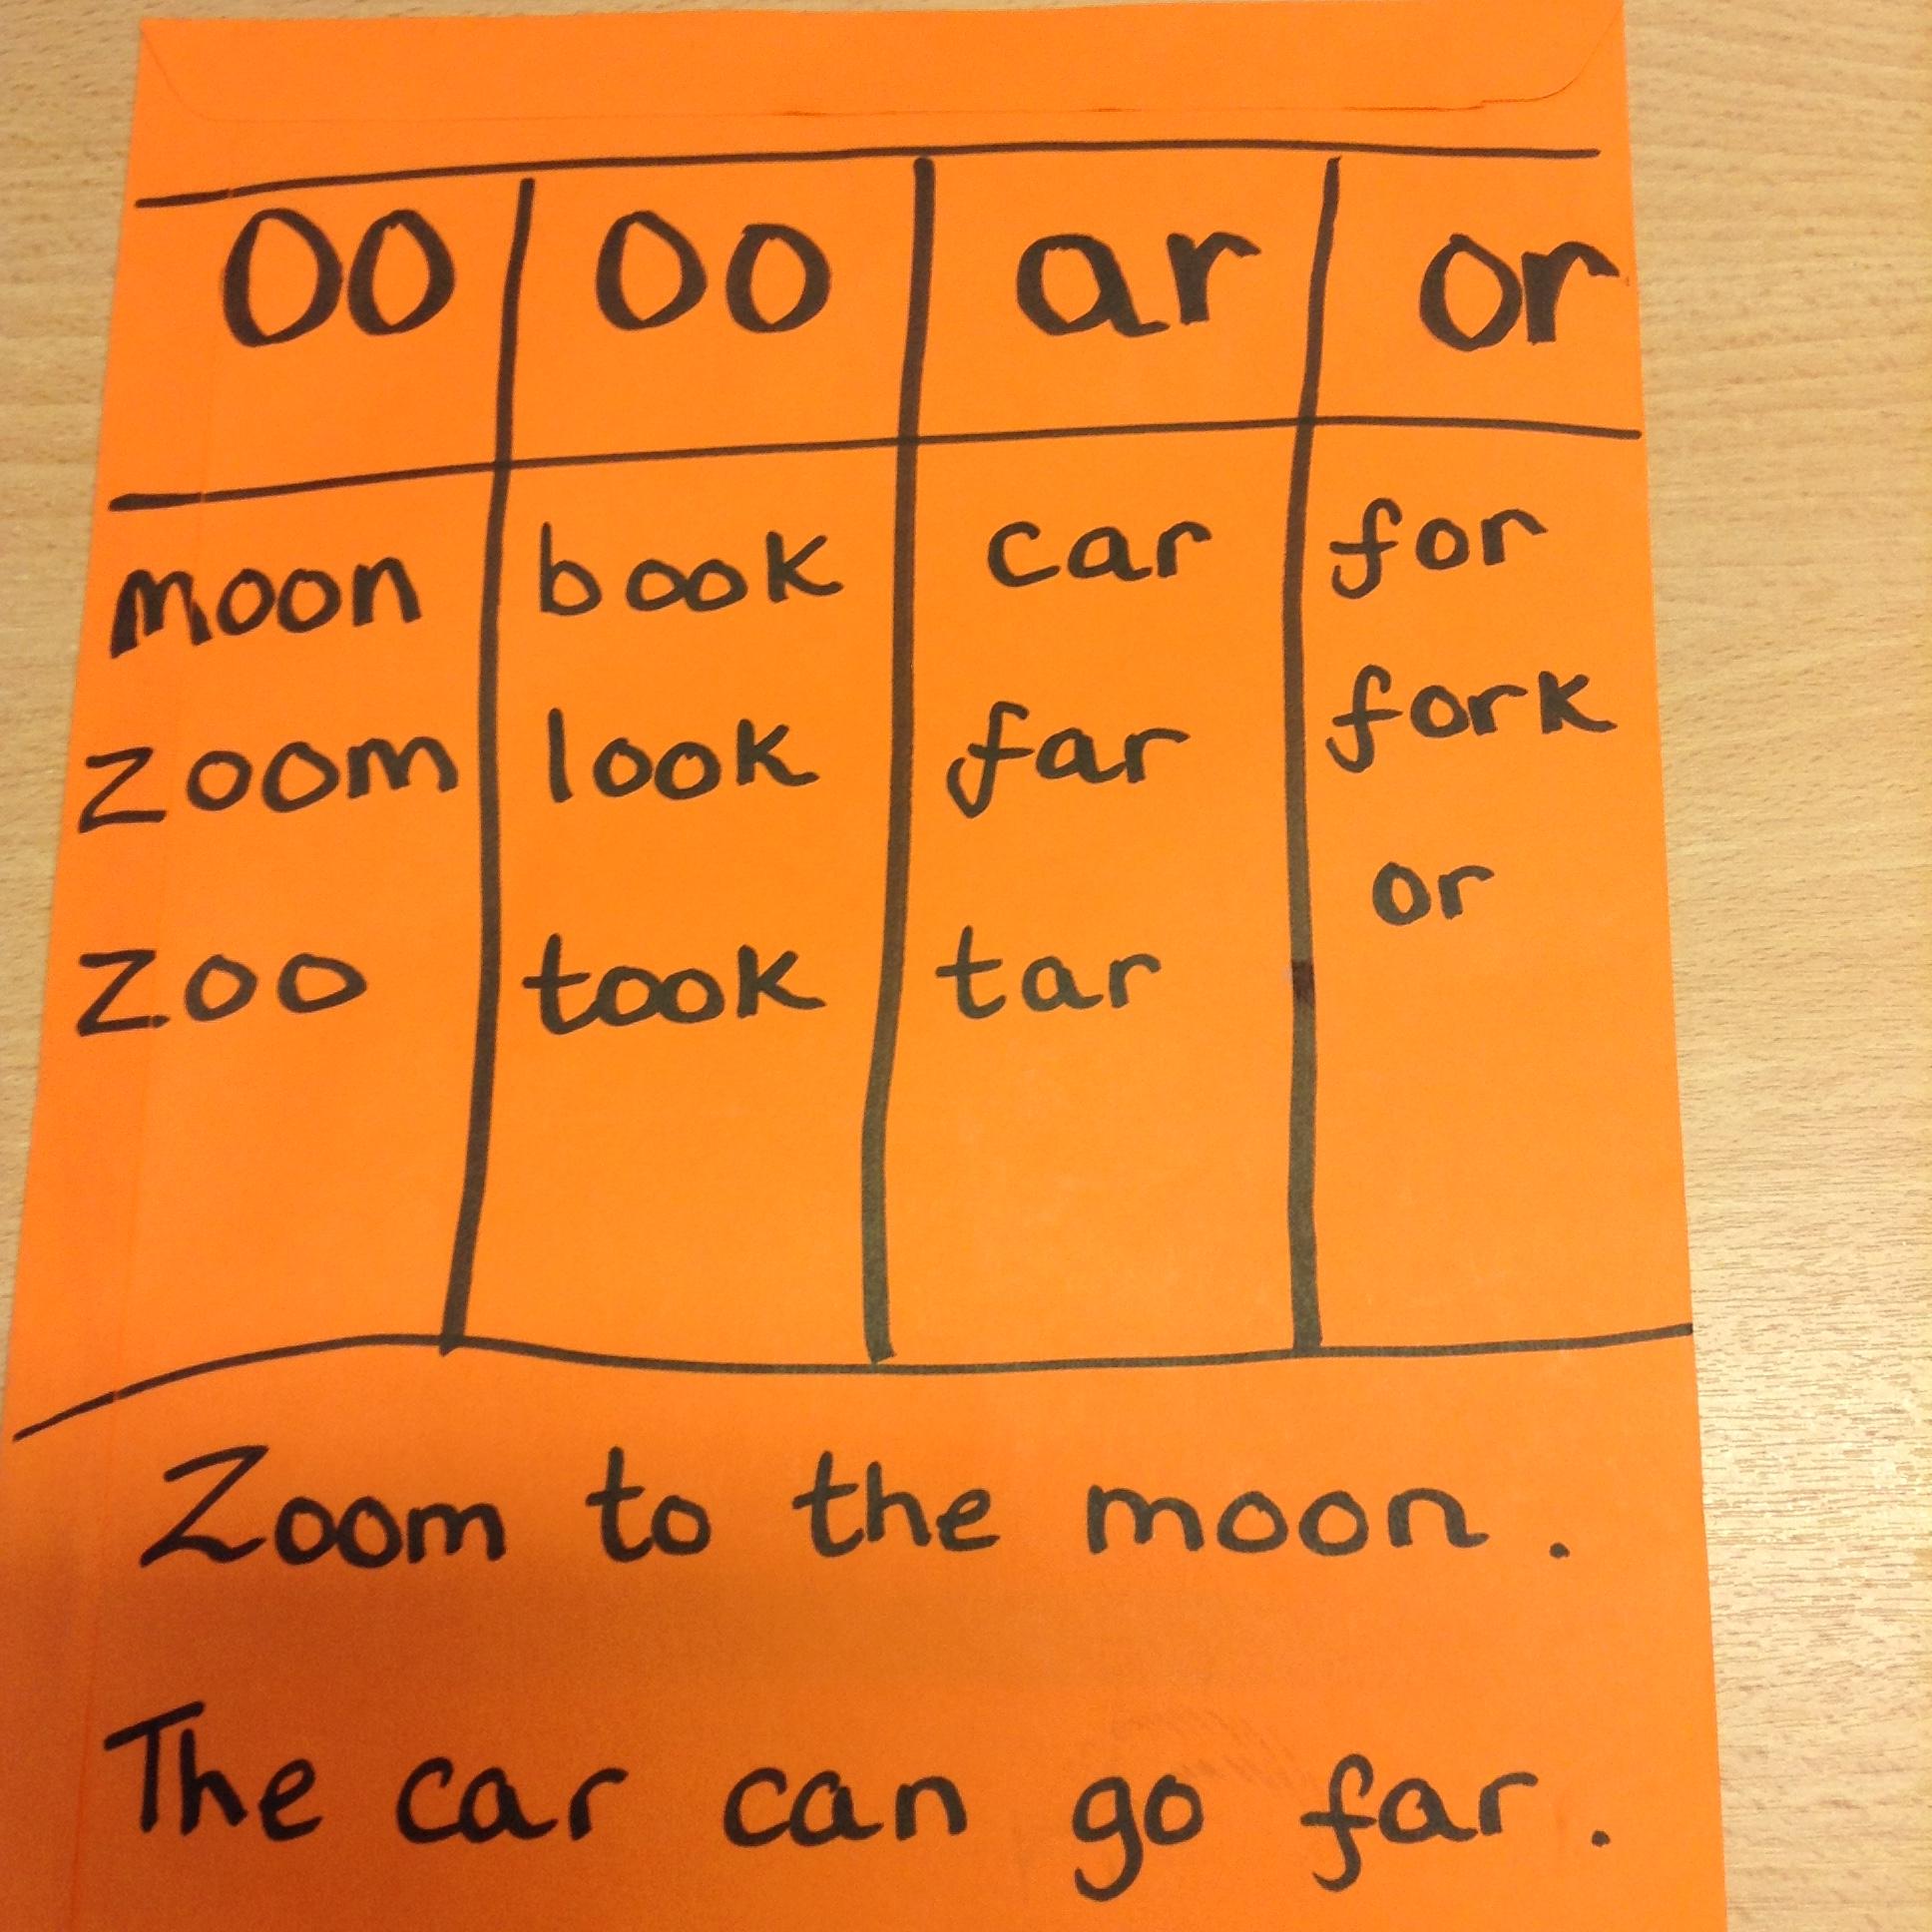 oo oo ar or
moon book car for
zoom look far fork
zoo took tar or
Zoom to the moon.
The car can go far.